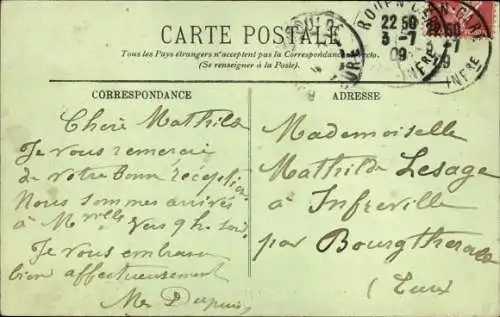 CARTE POSTALE
Tous les Pays étrangers n'acceptent pas la Correspondance au recto.
(Se renseigner à la Poste).
ROUEN GARE
22 50
3 - 7
09
CORRESPONDANCE
Chère Mathilde
Je vous remercie
de votre bonne réception
Nous sommes arrivés
à vers 9h. soir.
Je vous embrasse
bien affectueusement
Dupuis
ADRESSE
Mademoiselle
Mathilde Lesage
à Infreville
par Bourgtheroulde
(Eure)